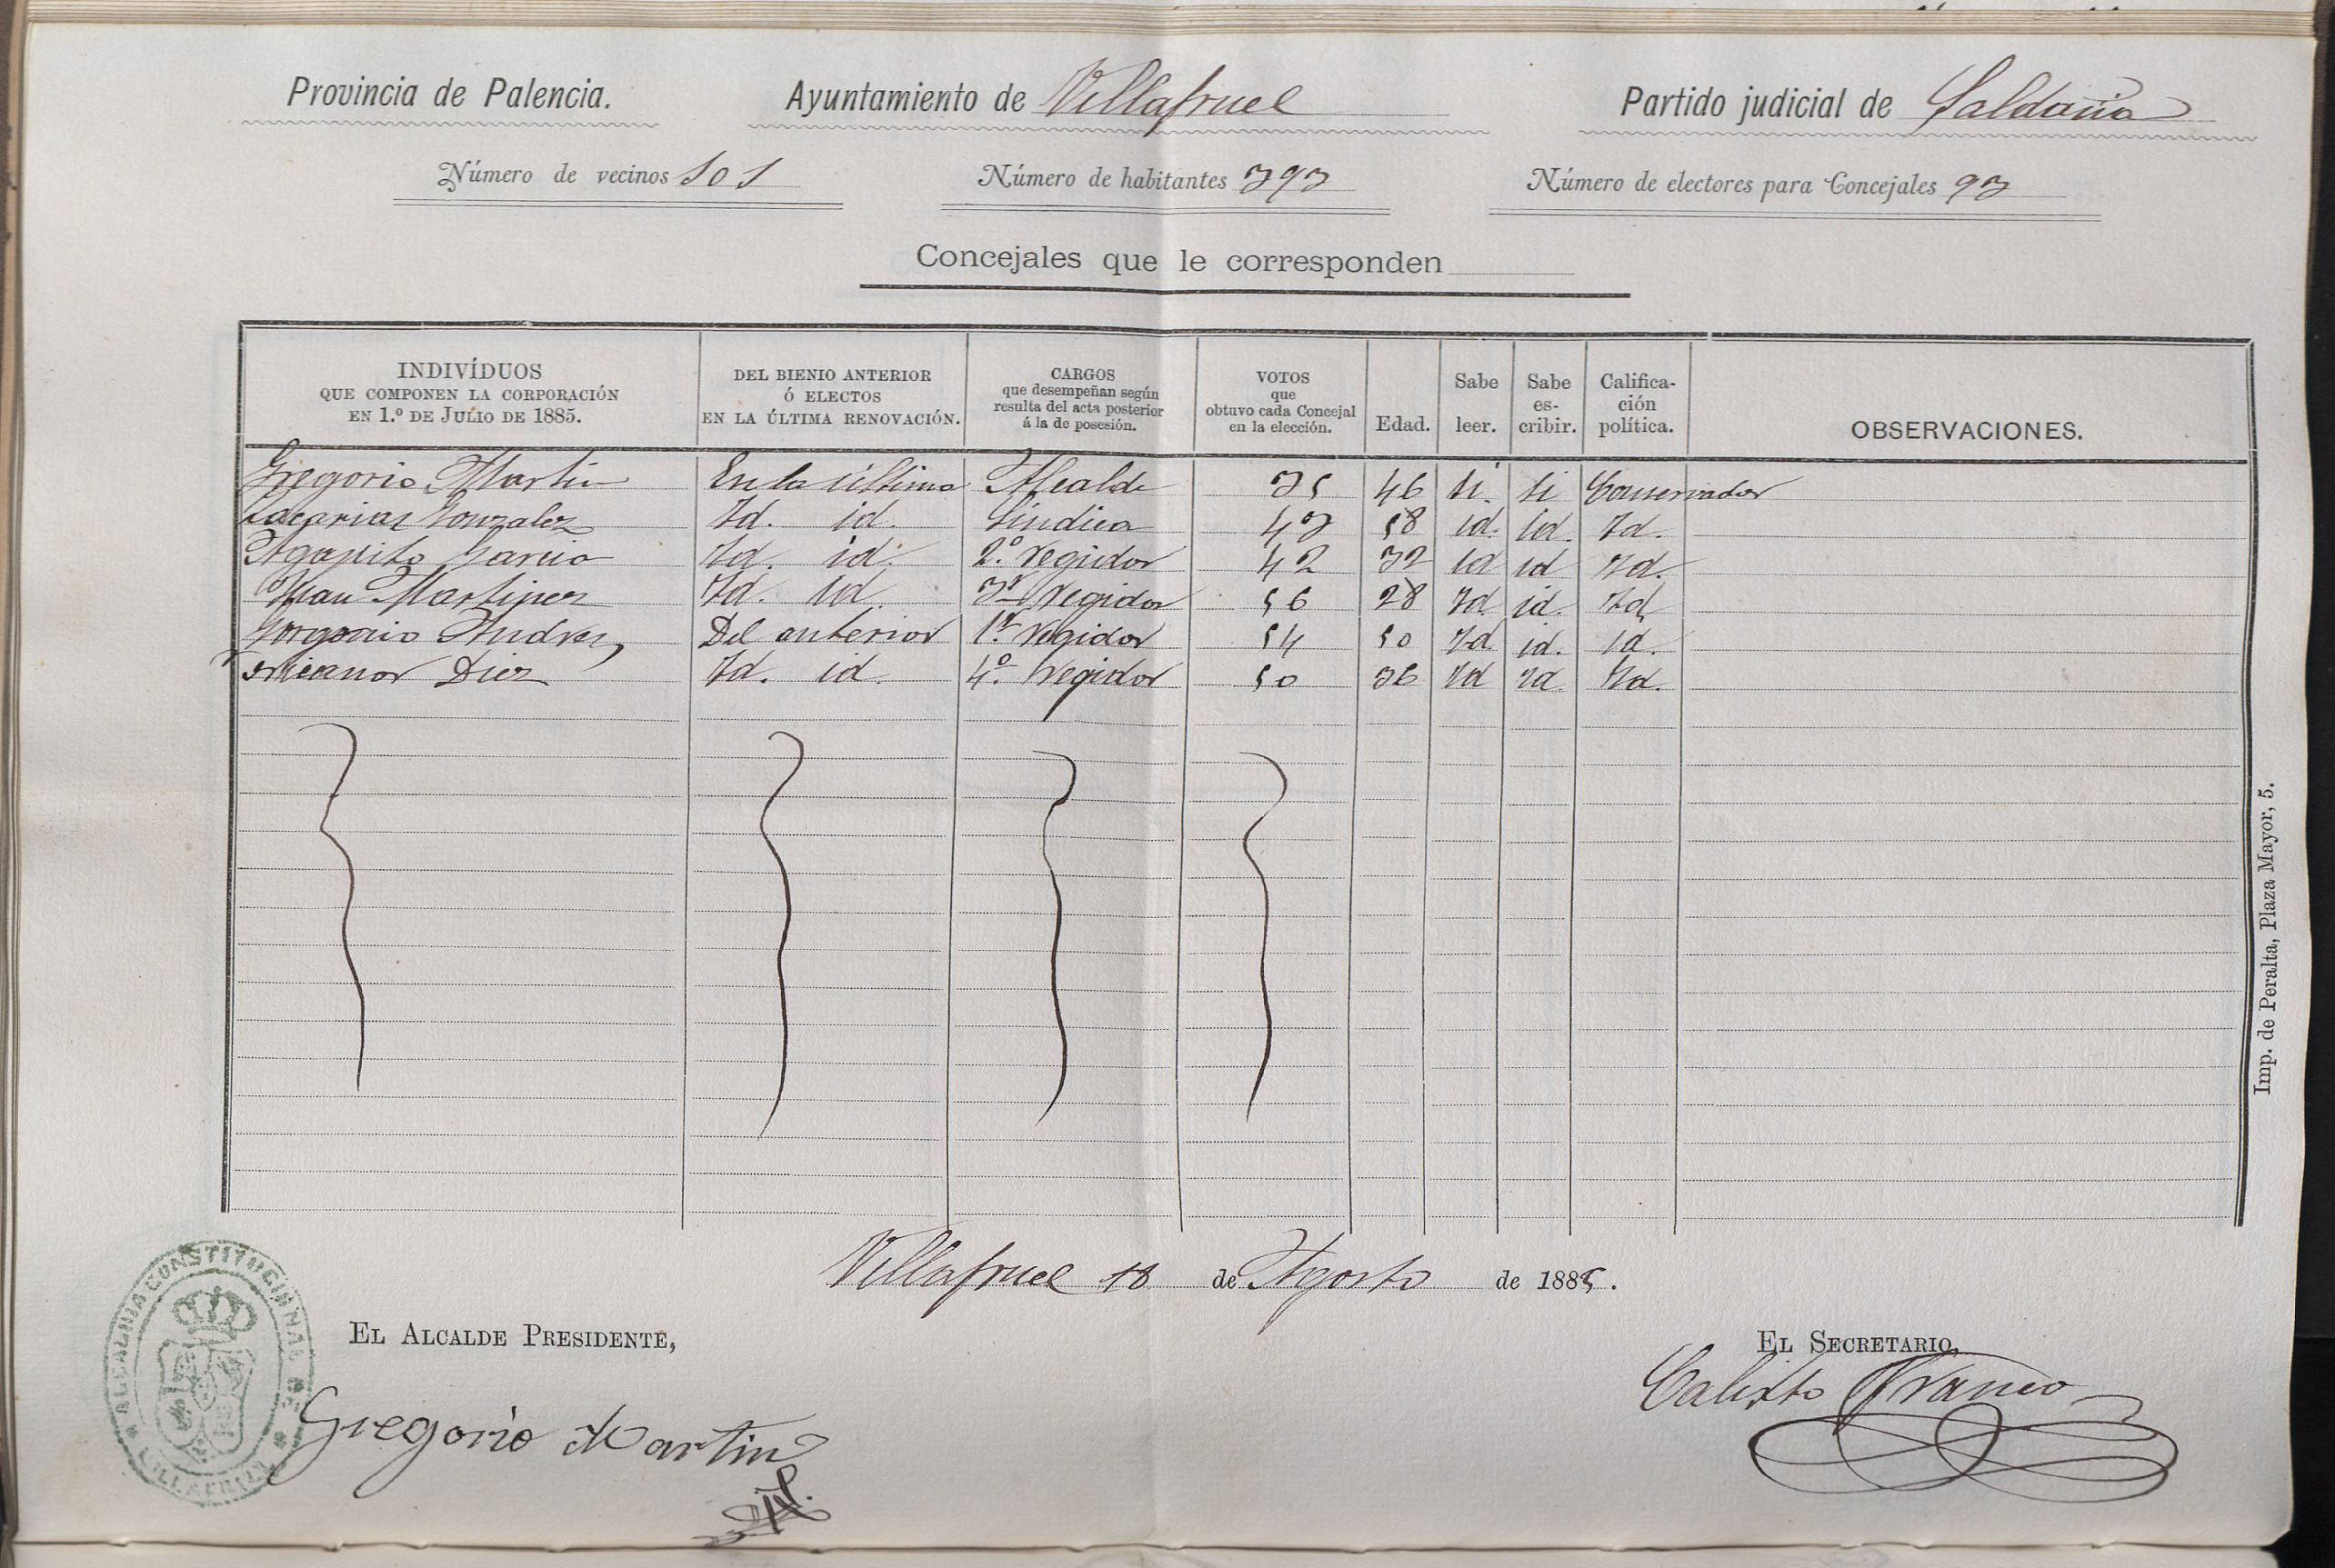 Provincia de Palencia. Ayuntamiento de Villafruel Partido judicial de Saldaña
Número de vecinos 101 Número de habitantes 393 Número de electores para Concejales 93
Concejales que le corresponden
INDIVÍDUOS QUE COMPONEN LA CORPORACIÓN EN 1.º DE JULIO DE 1885. DEL BIENIO ANTERIOR Ó ELECTOS EN LA ÚLTIMA RENOVACIÓN. CARGOS que desempeñan según resulta del acta posterior á la de posesión. VOTOS que obtuvo cada Concejal en la elección. Edad. Sabe leer. Sabe es-cribir. Califica-ción política. OBSERVACIONES.
Gregorio Martin En la última Alcalde 35 46 si. si Conservador
Zacarias Gonzalez Id. id. Sindico 43 58 id. id. Id.
Agapito Garcia Id. id. 2.º regidor 42 32 id id Id.
Juan Martinez Id. id. 3.r regidor 56 28 Id id. Id
Gorgonio Andres Del anterior 1.r regidor 54 50 Id id. id.
Nicanor Diez Id. id. 4.º regidor 50 36 Id Id Id.
Villafruel 18 de Agosto de 1885.
EL ALCALDE PRESIDENTE, EL SECRETARIO,
Gregorio Martin Calixto Franco
ALCALDIA CONSTITUCIONAL DE VILLAFRUEL
Imp. de Peralta, Plaza Mayor, 5.